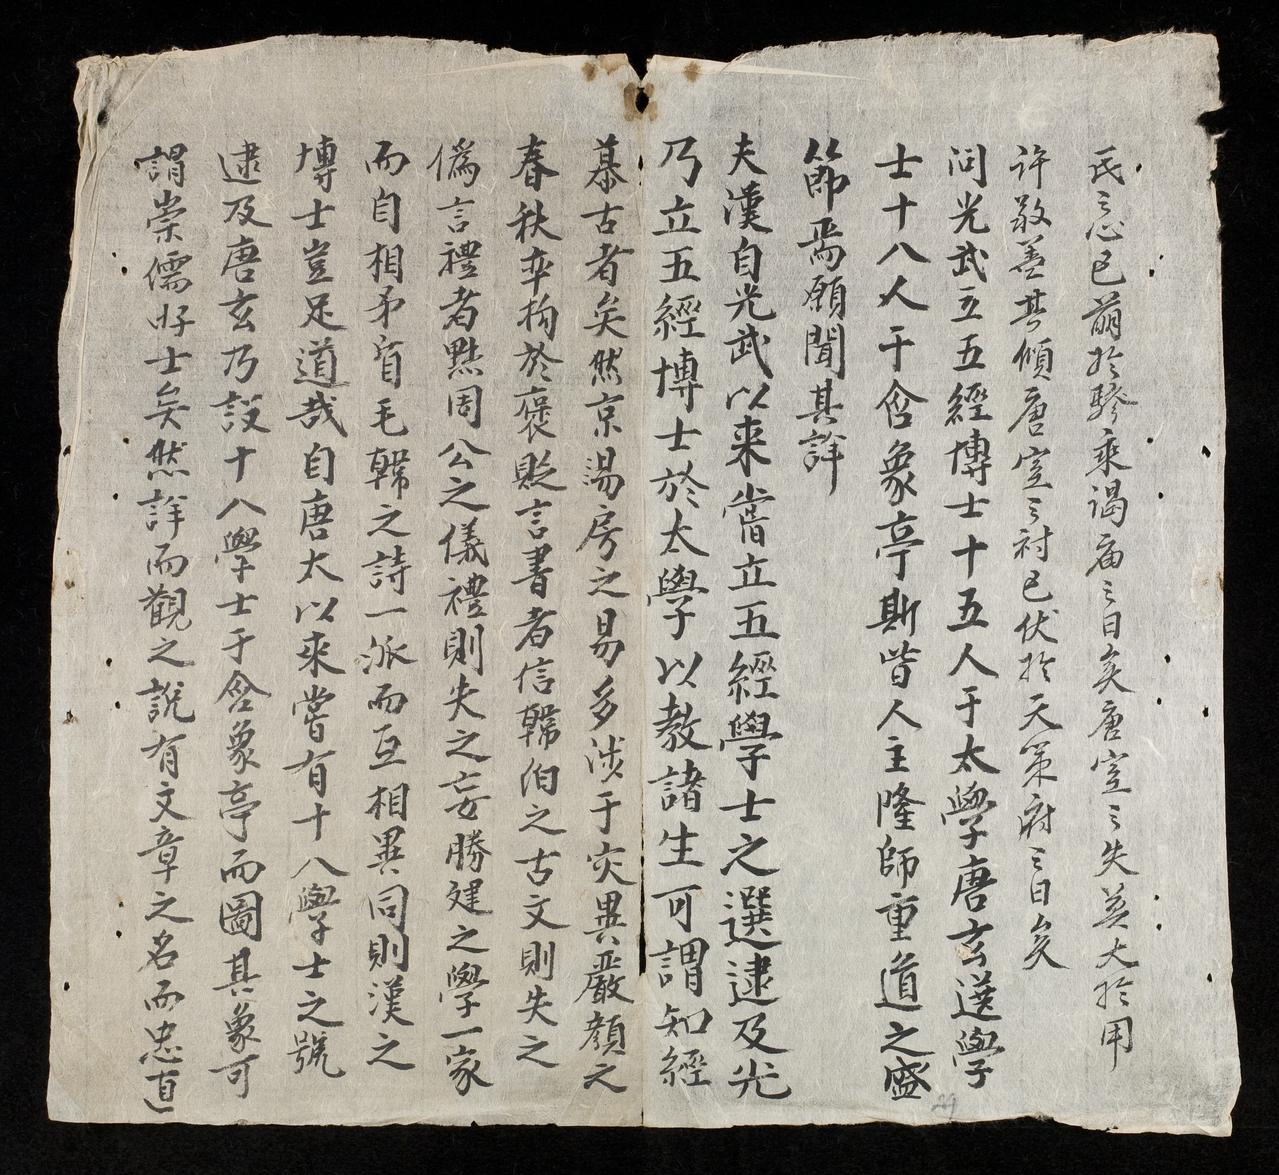 民之心已萌於驂乘謁庙之日矣唐室之失莫大於用
許敬善其傾唐室之対已伏於天策府之日矣
问光武立五經博士十五人于太學唐玄選學
士十八人于含象亭斯皆人主隆師重道之盛
節焉願聞其詳
夫漢自光武以来嘗立五經學士之選逮及光
乃立五經博士於太學以教諸生可謂知經
慕古者矣然京湯房之易多涉于灾異嚴顏之
春秋卒拘於褒貶言書者信韓伯之古文則失之
偽言禮者點周公之儀禮則失之妄勝建之學一家
而自相矛盾毛韓之詩一派而互相異同則漢之
博士豈足道哉自唐太以來嘗有十八學士之號
逮及唐玄乃設十八學士于含象亭而圖其象可
謂崇儒好士矣然詳而觀之說有文章之名而忠直